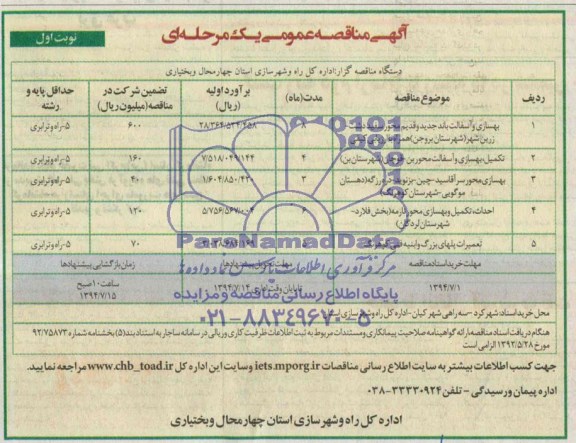 آگهی مناقصه عمومی یک مرحله‌ای
نوبت اول
دستگاه مناقصه گزار:اداره کل راه وشهرسازی استان چهارمحال وبختیاری
ردیف موضوع مناقصه مدت(ماه) برآورد اولیه (ریال) تضمین شرکت در مناقصه(میلیون ریال) حداقل پایه و رشته
۱ بهسازی و آسفالت باند جدید وقدیم محور زرین شهر(شهرستان بروجن) ۸ ۶۰۰ ۵-راه وترابری
۲ تکمیل،بهسازی و آسفالت محور بن (شهرستان بن) ۴ ۱۶۰ ۵-راه وترابری
۳ بهسازی محور سرآقاسید-چین- (دهستان موگویی-شهرستان کوهرنگ) ۳ ۱/۶۰۴/۸۵۰/۴۳۰ ۴۰ ۵-راه وترابری
۴ احداث،تکمیل وبهسازی محور (بخش فلارد-شهرستان لردگان) ۴ ۱۳۰ ۵-راه وترابری
۵ تعمیرات پلهای بزرگ وابنیه فنی ۵ ۷۰ ۵-راه وترابری
مهلت خرید اسناد مناقصه مهلت تحویل پیشنهادها زمان بازگشایی پیشنهادها
۱۳۹۴/۷/۱ تا پایان وقت اداری ۱۳۹۴/۷/۱۴ ساعت ۱۰ صبح ۱۳۹۴/۷/۱۵
محل خرید اسناد:شهرکرد-سه راهی شهر کیان-اداره کل راه وشهرسازی استان
هنگام دریافت اسناد مناقصه ارائه گواهینامه صلاحیت پیمانکاری ومستندات مربوط به ثبت اطلاعات ظرفیت کاری وریالی در سامانه ساجار به استناد بند(۵)بخشنامه شماره ۹۲/۷۵۸۷۳
مورخ ۱۳۹۲/۵/۲۸ الزامی است
جهت کسب اطلاعات بیشتر به سایت اطلاع رسانی مناقصات iets.mporg.ir وسایت این اداره کل www.chb_toad.ir مراجعه نمایید.
اداره پیمان ورسیدگی - تلفن ۳۳۳۳۰۹۲۴-۰۳۸
اداره کل راه وشهرسازی استان چهارمحال وبختیاری
ParsNamadData
مرکز فرآوری اطلاعات پارس نماد داده‌ها
پایگاه اطلاع رسانی مناقصه و مزایده
۰۲۱-۸۸۳۴۹۶۷۰-۵